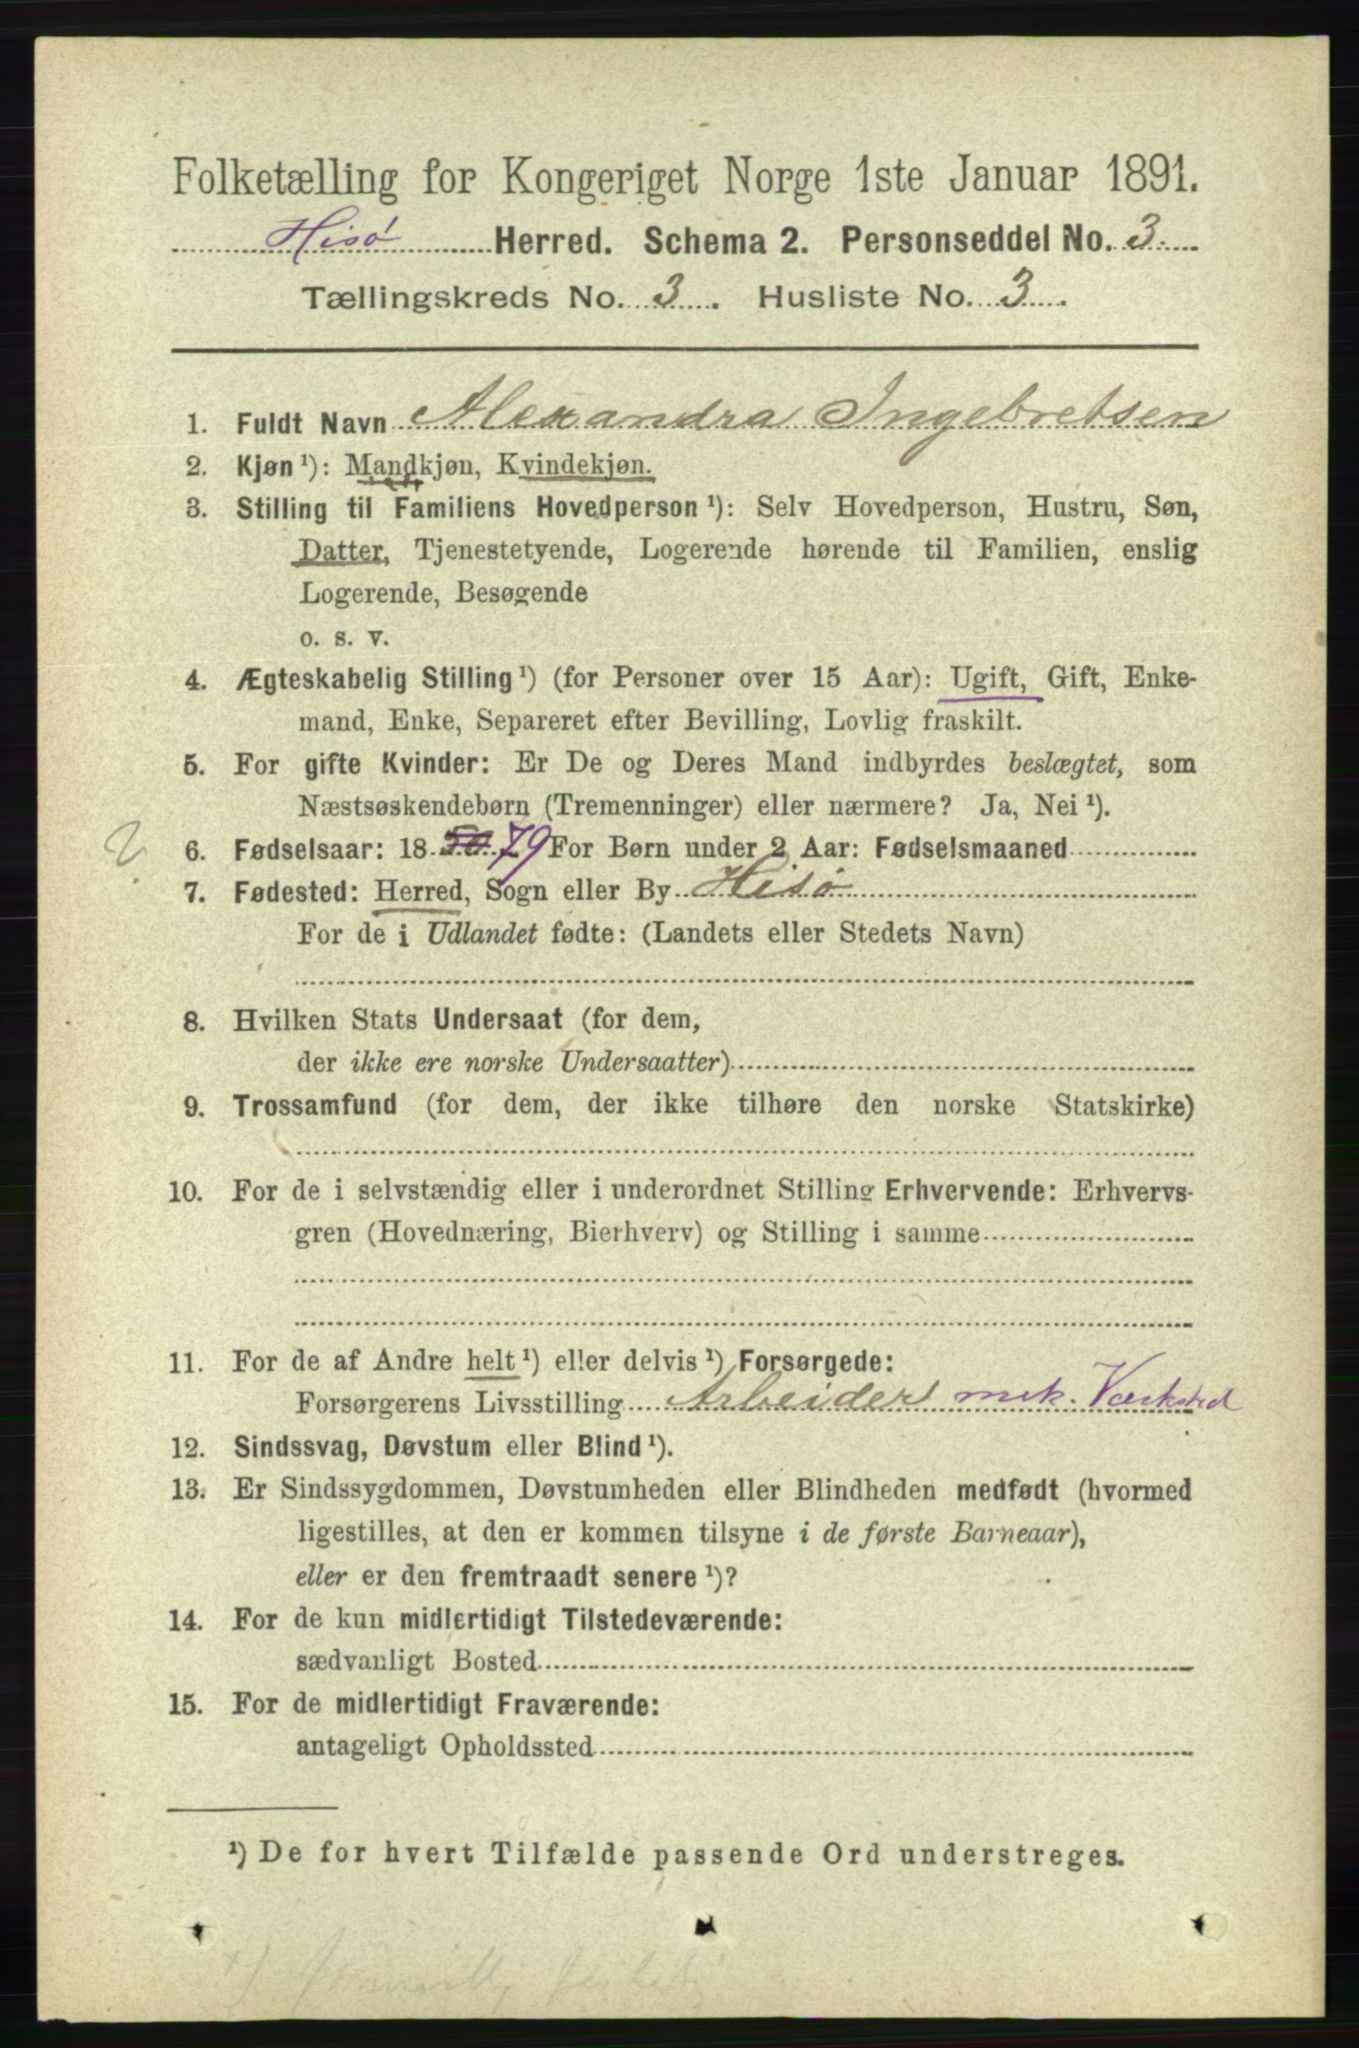 Folketælling for Kongeriget Norge 1ste Januar 1891.
Hisø Herred. Schema 2. Personseddel No. 3.
Tællingskreds No. 3. Husliste No. 3.
1. Fuldt Navn Alexandra Ingebretsen
2. Kjøn ¹): Mandkjøn, Kvindekjøn.
3. Stilling til Familiens Hovedperson ¹): Selv Hovedperson, Hustru, Søn,
Datter, Tjenestetyende, Logerende hørende til Familien, enslig
Logerende, Besøgende
o. s. v.
4. Ægteskabelig Stilling ¹) (for Personer over 15 Aar): Ugift, Gift, Enke-
mand, Enke, Separeret efter Bevilling, Lovlig fraskilt.
5. For gifte Kvinder: Er De og Deres Mand indbyrdes beslægtet, som
Næstsøskendebørn (Tremenninger) eller nærmere? Ja, Nei ¹).
? 6. Fødselsaar: 18 50 79 For Børn under 2 Aar: Fødselsmaaned
7. Fødested: Herred, Sogn eller By Hisø
For de i Udlandet fødte: (Landets eller Stedets Navn)
8. Hvilken Stats Undersaat (for dem,
der ikke ere norske Undersaatter)
9. Trossamfund (for dem, der ikke tilhøre den norske Statskirke)
10. For de i selvstændig eller i underordnet Stilling Erhvervende: Erhvervs-
gren (Hovednæring, Bierhverv) og Stilling i samme
11. For de af Andre helt ¹) eller delvis ¹) Forsørgede:
Forsørgerens Livsstilling Arbeider mek. Værksted
12. Sindssvag, Døvstum eller Blind ¹).
13. Er Sindssygdommen, Døvstumheden eller Blindheden medfødt (hvormed
ligestilles, at den er kommen tilsyne i de første Barneaar),
eller er den fremtraadt senere ¹)?
14. For de kun midlertidigt Tilstedeværende:
sædvanligt Bosted
15. For de midlertidigt Fraværende:
antageligt Opholdssted
¹) De for hvert Tilfælde passende Ord understreges.